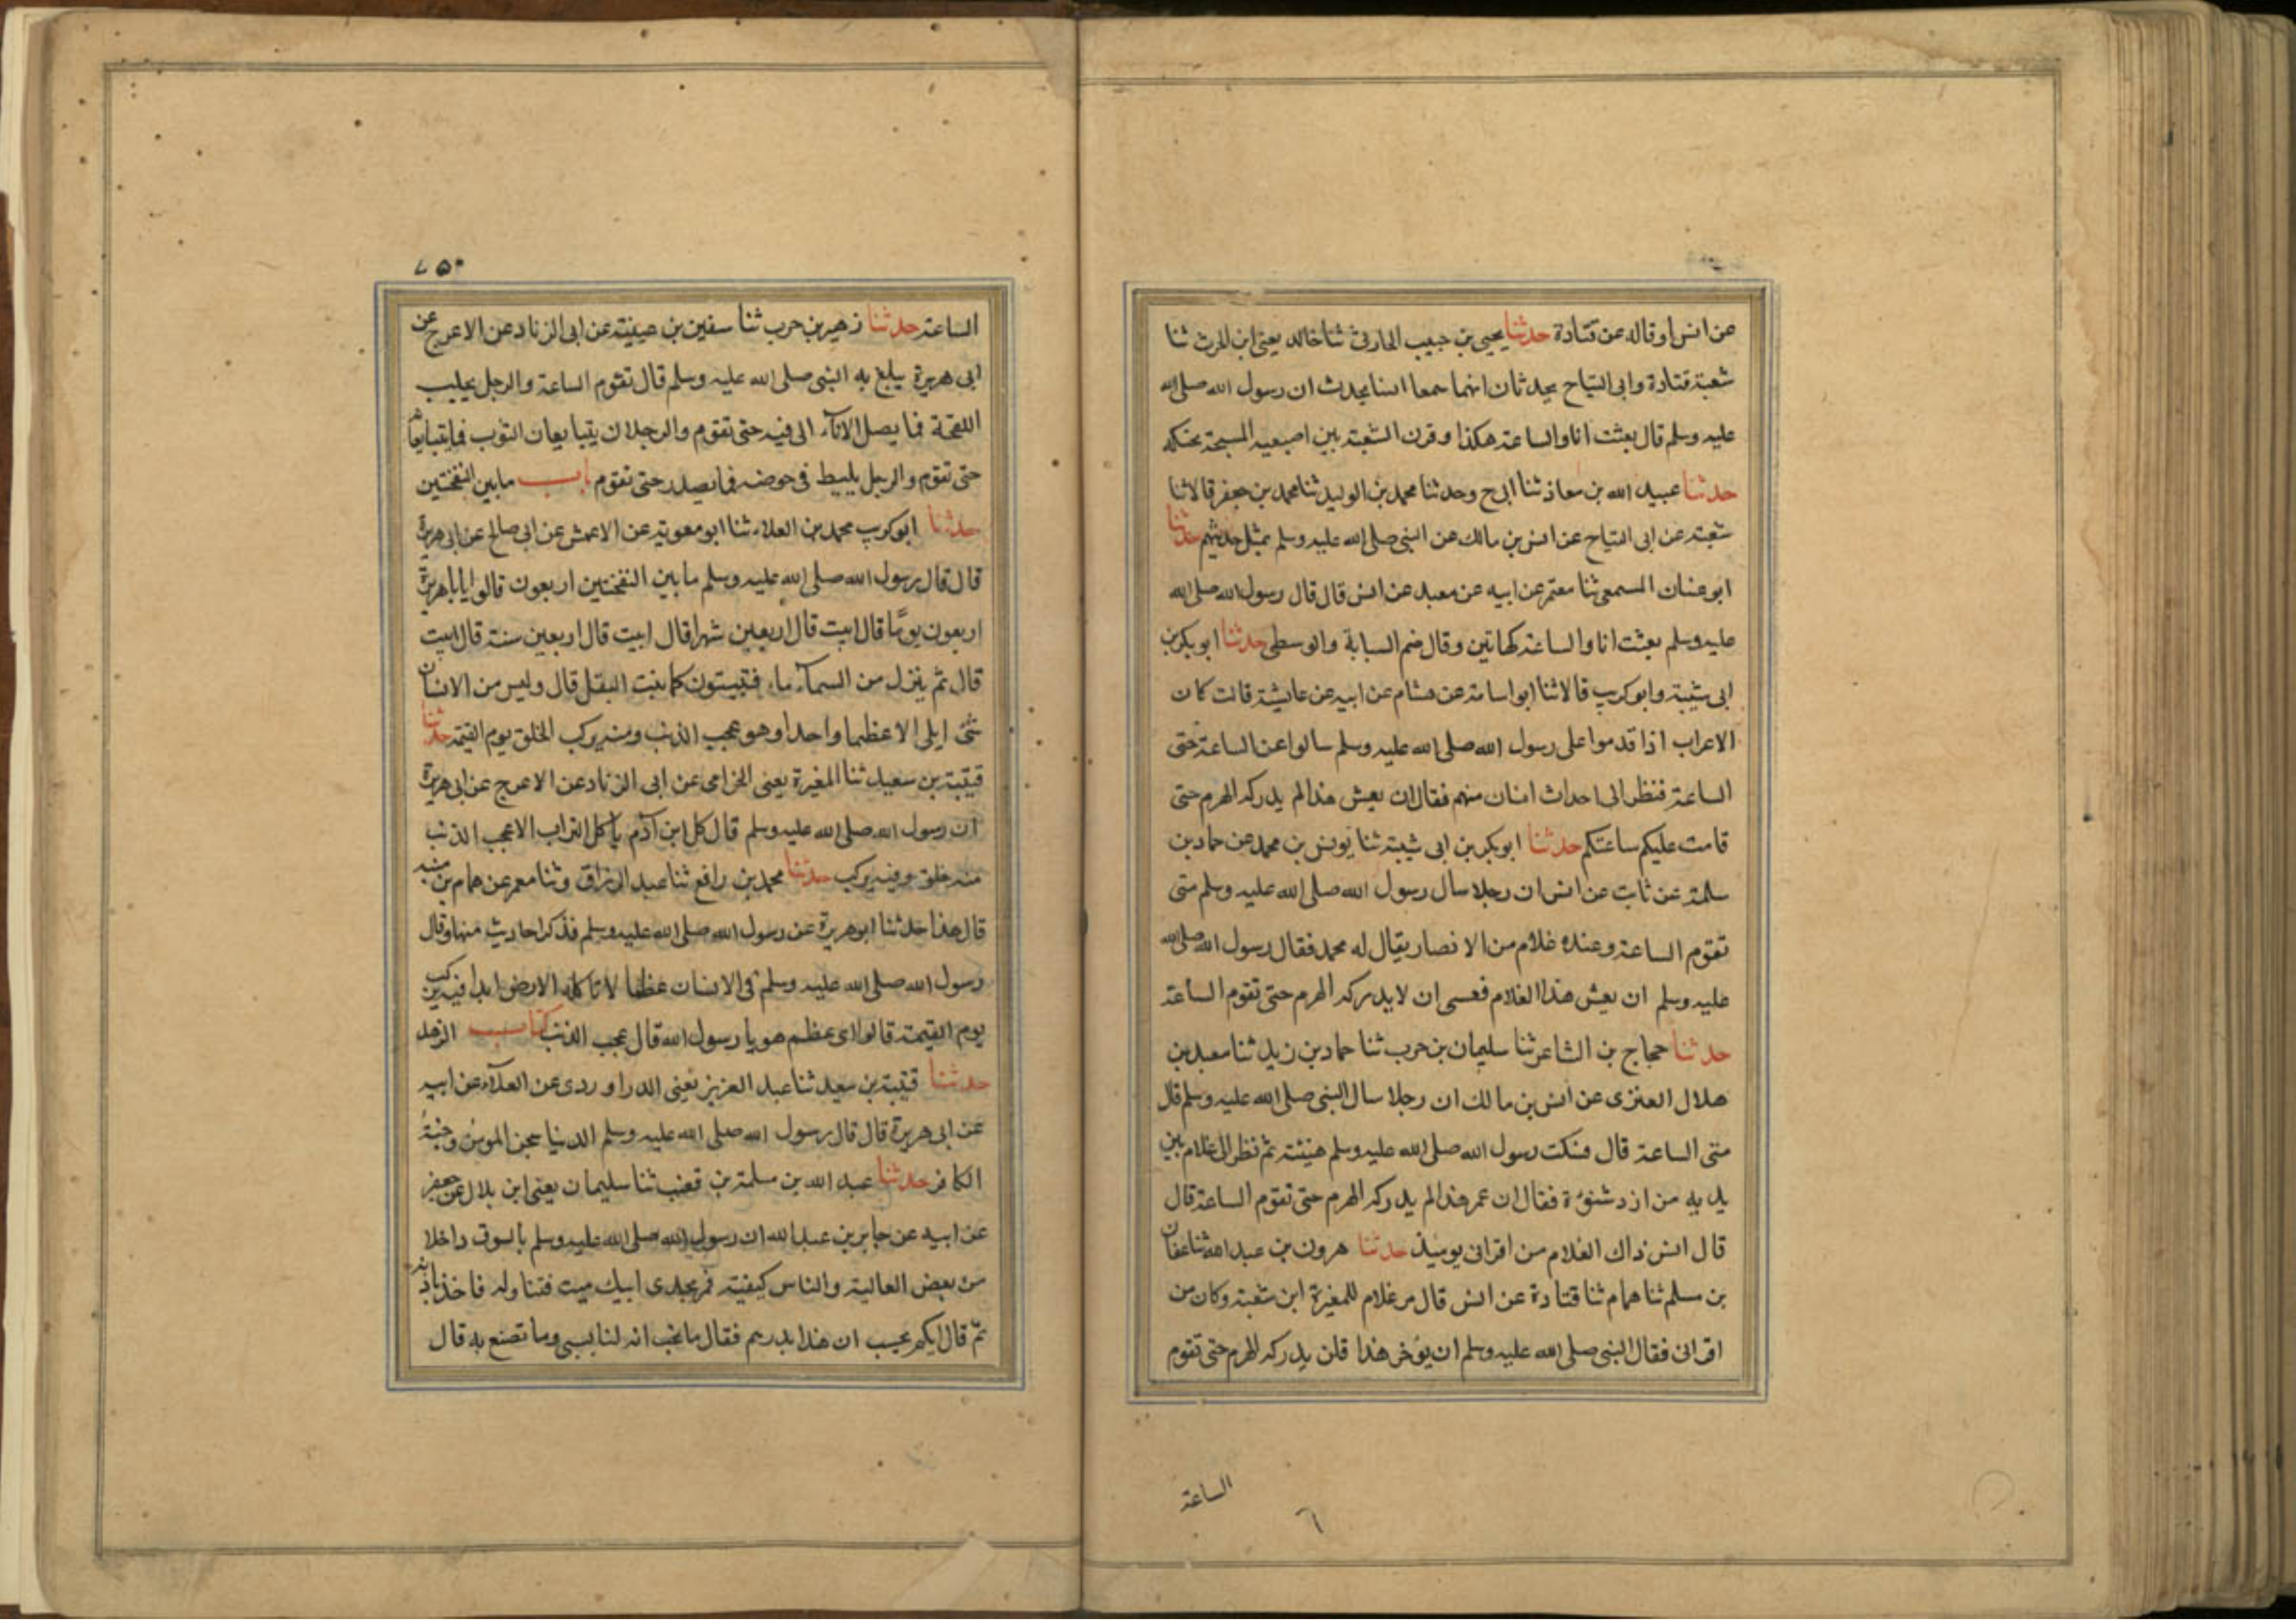 عن انس او قاله عن قتادة حدثنا يحيى بن حبيب الحارثى ثنا خالد يعنى ابن الحرث ثنا
شعبة قتادة وابى التياح يحدثان انهما سمعا انسا يحدث ان رسول الله صلى الله
عليه وسلم قال بعثت انا والساعة هكذا وقرن الشعبة بين اصبعيه المسبحة يحكيه
حدثنا عبيد الله بن معاذ ثنا ابى ح وحدثنا محمد بن الوليد ثنا محمد بن جعفر قالا ثنا
شعبة عن ابى التياح عن انس بن مالك عن النبى صلى الله عليه وسلم بمثل حديثهم حدثنا
ابو غسان المسمعى ثنا معتمر عن ابيه عن معبد عن انس قال قال رسول الله صلى الله
عليه وسلم بعثت انا والساعة كهاتين وقال ضم السبابة والوسطى حدثنا ابو بكر بن
ابى شيبة وابو كريب قالا ثنا ابو اسامة عن هشام عن ابيه عن عايشة قالت كان
الاعراب اذا قدموا على رسول الله صلى الله عليه وسلم سالوا عن الساعة متى
الساعة فنظر الى احداث انسان منهم فقال ان يعش هذا لم يدركه الهرم حتى
قامت عليكم ساعتكم حدثنا ابو بكر بن ابى شيبة ثنا يونس بن محمد عن حماد بن
سلمة عن ثابت عن انس ان رجلا سال رسول الله صلى الله عليه وسلم متى
تقوم الساعة وعنده غلام من الانصار يقال له محمد فقال رسول الله صلى الله
عليه وسلم ان يعش هذا الغلام فعسى ان لا يدركه الهرم حتى تقوم الساعة
حدثنا حجاج بن الشاعر ثنا سليمان بن حرب ثنا حماد بن زيد ثنا معبد بن
هلال العنزى عن انس بن مالك ان رجلا سال النبى صلى الله عليه وسلم قال
متى الساعة قال فسكت رسول الله صلى الله عليه وسلم هنيئة ثم نظر الى غلام بين
يديه من ازد شنوءة فقال ان عمر هذا لم يدركه الهرم حتى تقوم الساعة قال
قال انس ذاك الغلام من اقرانى يوميذ حدثنا هرون بن عبد الله ثنا عفان
بن مسلم ثنا همام ثنا قتادة عن انس قال مر غلام للمغيرة ابن شعبة وكان من
اقرانى فقال النبى صلى الله عليه وسلم ان يؤخر هذا فلن يدركه الهرم حتى تقوم
الساعة
٧٥٠
الساعة حدثنا زهير بن حرب ثنا سفين بن عيينة عن ابى الزناد عن الاعرج عن
ابى هريرة يبلغ به النبى صلى الله عليه وسلم قال تقوم الساعة والرجل يحلب
اللقحة فما يصل الاناء الى فيه حتى تقوم والرجلان يتبايعان الثوب فما يتبايعانه
حتى تقوم والرجل يليط فى حوضه فما يصدر حتى تقوم باب ما بين النفختين
حدثنا ابو كريب محمد بن العلاء ثنا ابو معوية عن الاعمش عن ابى صالح عن ابى هريرة
قال قال رسول الله صلى الله عليه وسلم ما بين النفختين اربعون قالوا يابا هريرة
اربعون يومًا قال ابيت قال اربعين شهرا قال ابيت قال اربعين سنة قال ابيت
قال ثم ينزل من السمآء ماء فتبيتون كما ينبت البقل قال وليس من الانسان
شئ ايلى الا عظما واحدا وهو عجب الذنب ومنه يركب الخلق يوم القيمة حدثنا
قيتبة بن سعيد ثنا المغيرة يعنى الحزامى عن ابى الزناد عن الاعرج عن ابى هريرة
ان رسول الله صلى الله عليه وسلم قال كل ابن آدم ياكل التراب الا عجب الذنب
منه خلق وفيه يركب حدثنا محمد بن رافع ثنا عبد الرزاق وثنا معمر عن همام بن منبه
قال هذا حدثنا ابو هريرة عن رسول الله صلى الله عليه وسلم فذكر احاديث منها وقال
رسول الله صلى الله عليه وسلم فى الانسان عظما لا تاكله الارض ابدا فيه يركب
يوم القيمة قالوا اى عظم هو يا رسول الله قال عجب الذنب كتاب الزهد
حدثنا قتيبة بن سعيد ثنا عبد العزيز يعنى الدراوردى عن العلآء عن ابيه
عن ابى هريرة قال قال رسول الله صلى الله عليه وسلم الدنيا سجن المومن وجنة
الكافر حدثنا عبد الله بن مسلمة بن قعنب ثنا سليمان يعنى ابن بلال عن جعفر
عن ابيه عن جابر بن عبد الله ان رسول الله صلى الله عليه وسلم بالسوق داخلا
من بعض العالية والناس كيفيته فمر بجدى ابيك ميت فتناوله فاخذ باذنه
ثم قال ايكم يحب ان هذا بدرهم فقال ما نحب انه لنا بسى وما تصنع به قال